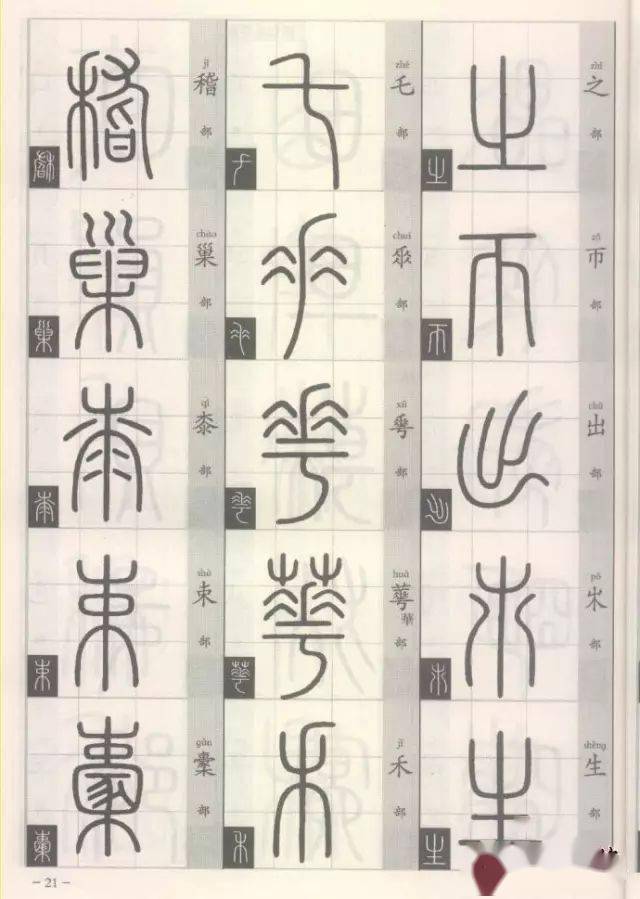 zhī
之部
zā
帀部
chū
出部
pō
𣎵部
shēng
生部
zhé
乇部
chuí
𠂹部
xū
𠌶部
huā
蕐華部
jī
禾部
jī
稽部
cháo
巢部
qī
桼部
shù
束部
gǔn
㯻部
－21－